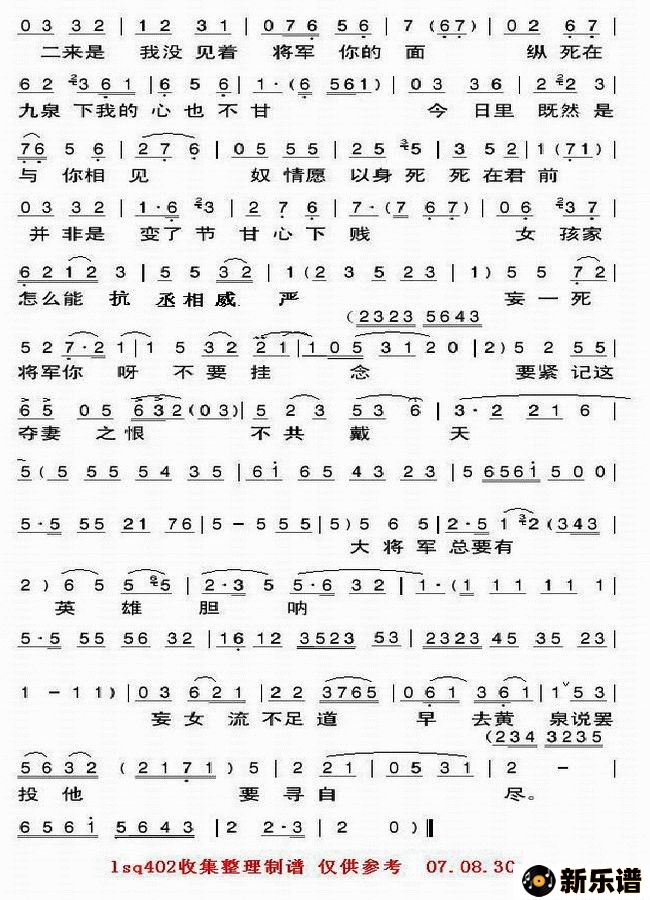 0 3 3 2 | 1 2 3 1 | 0 7 6 5 6 | 7 (6 7) | 0 2 6 7 |
二来是 我没见着 将军你的面 纵死在
6 2 3 6 1 | 6 5 6 | 1·(6 5 6 1) | 0 3 3 6 | 2 2 2 3 |
九泉下我的心也不甘 今日里既然是
7 6 5 6 | 2 7 6 | 0 5 5 5 | 2 5 3 5 | 3 5 2 | 1 (7 1) |
与你相见 奴情愿以身死死在君前
0 3 3 2 | 1·6 3 | 2 7 6 | 7·(7 6 7) | 0 6 3 7 |
并非是 变了节甘心下贱 女孩家
6 2 1 2 3 | 5 5 3 2 | 1 (2 3 5 2 3 | 1) 5 5 7 2 |
怎么能抗丞相威严 妄一死
(2 3 2 3 5 6 4 3
5 2 7·2 1 | 1 5 3 2 2 1 | 1 0 5 3 1 2 0 | 2) 5 2 5 5 |
将军你呀不要挂念 要紧记这
6 5 0 5 6 3 2 (0 3) | 5 2 3 5 3 6 | 3·2 2 1 6 |
夺妻之恨 不共戴天
5 (5 5 5 5 4 3 5 | 6 1 6 5 4 3 2 3 | 5 6 5 6 1 5 0 0 |
5·5 5 5 2 1 7 6 | 5 - 5 5 5 | 5) 5 6 5 | 2·5 1 2 (3 4 3 |
大将军总要有
2) 6 5 5 5 | 2·3 5 5·6 3 2 | 1·(1 1 1 1 1 1 |
英雄胆呐
5·5 5 5 5 6 3 2 | 1 6 1 2 3 5 2 3 5 3 | 2 3 2 3 4 5 3 5 2 3 |
1 - 1 1) | 0 3 6 2 1 | 2 2 3 7 6 5 | 0 6 1 3 6 1 | 1 5 3 |
妄女流不足道 早去黄泉说罢
(2 3 4 3 2 3 5
5 6 3 2 (2 1 7 1) 5 | 2 2 1 | 0 5 3 1 | 2 - |
投他 要寻自尽。
6 5 6 1 5 6 4 3 | 2 2·3 | 2 0) ||
lsq402收集整理制谱 仅供参考 07.08.30
新乐谱